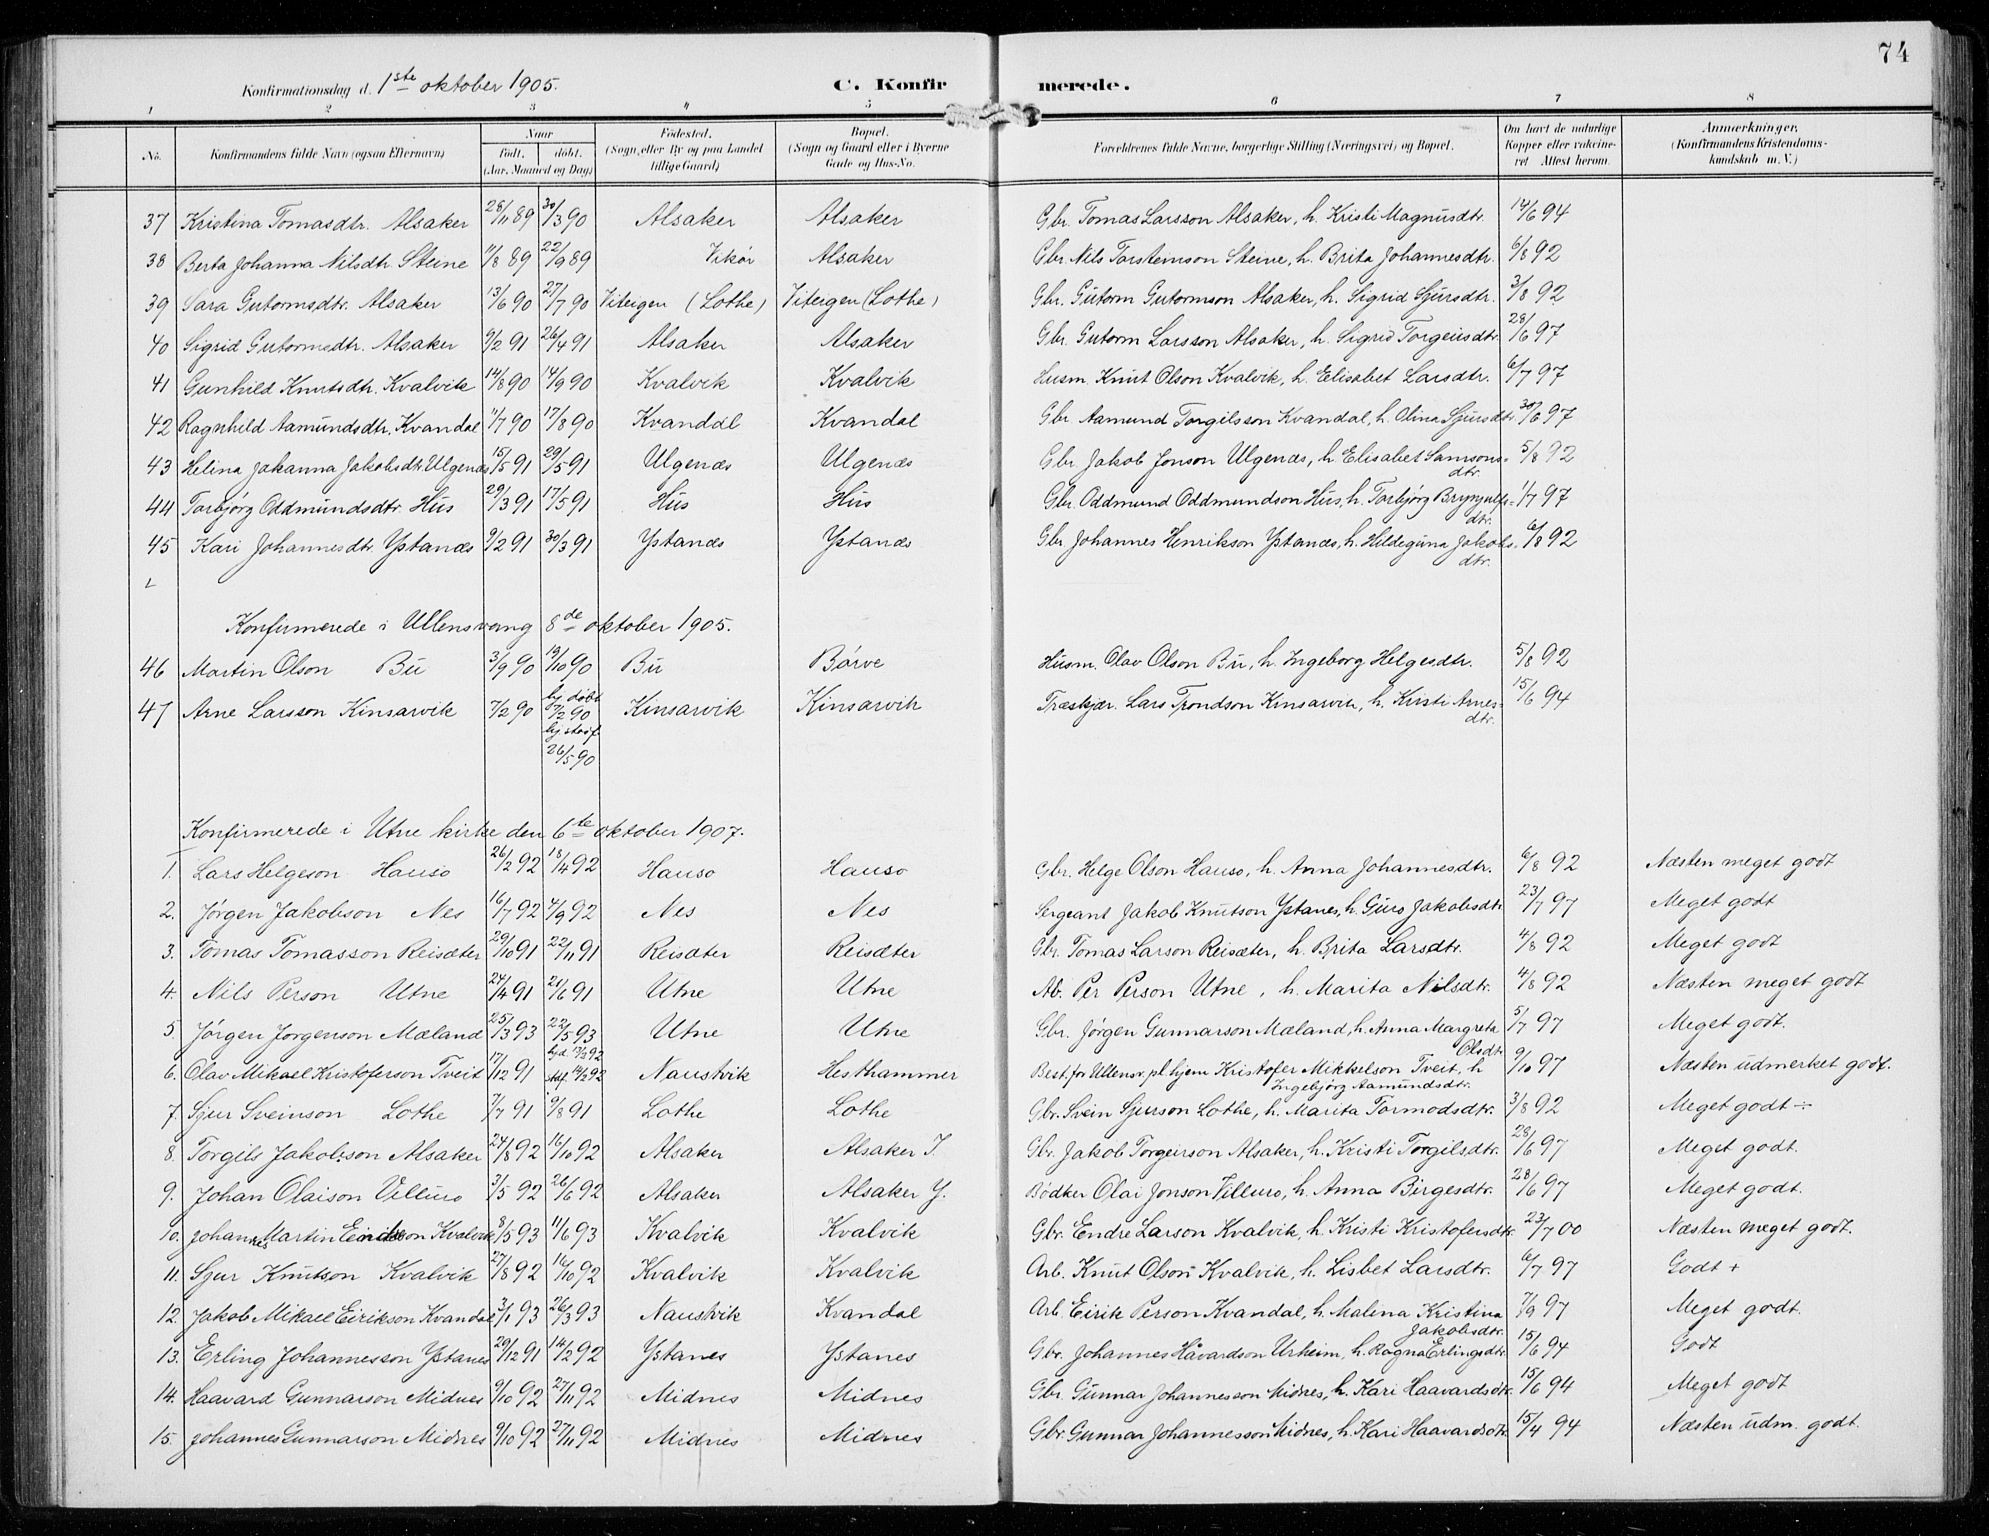 74
Konfirmationsdag d. 1ste oktober 1905. C. Konfirmerede.
1 2 3 4 5 6 7 8
No. Konfirmandens fulde Navn (ogsaa Efternavn) Naar født, døbt, (Aar, Maaned og Dag) Fødested. (Sogn, eller By og paa Landet tillige Gaard) Bopæl. (Sogn og Gaard eller i Byerne Gade og Hus-No. Forældrenes fulde Navne, borgerlige Stilling (Næringsvei) og Bopæl. Om havt de naturlige Kopper eller vakcineret Attest herom. Anmærkninger, (Konfirmandens Kristendomskundskab m. V.)
37 Kristina Tomasdtr. Alsaker 28/11 89 30/3 90 Alsaker Alsaker Gbr. Tomas Larsson Alsaker, h. Kristi Magnusdtr. 14/6 94
38 Berta Johanna Nilsdtr Steine 11/8 89 22/9 89 Vikør Alsaker Gbr. Nils Torsteinson Steine, h. Brita Johannesdtr. 6/8 92
39 Sara Gutormsdtr. Alsaker 13/6 90 27/7 90 Viteigen (Lothe) Viteigen (Lothe) Gbr. Gutorm Gutormson Alsaker, h. Sigrid Sjursdtr. 3/8 92
40 Sigrid Gutormsdtr. Alsaker 9/2 91 26/4 91 Alsaker Alsaker Gbr. Gutorm Larsson Alsaker, h. Sigrid Torgeirsdtr. 28/6 97
41 Gunhild Knutsdtr. Kvalvik 14/8 90 14/9 90 Kvalvik Kvalvik Husm. Knut Olson Kvalvik, h. Elisabet Larsdtr. 6/7 97
42 Ragnhild Aamundsdtr. Kvandal 11/7 90 17/8 90 Kvandal Kvandal Gbr. Aamund Torgilsson Kvandal, h. Olina Sjursdtr. 30/6 97
43 Helina Johanna Jakobsdtr Ulgenæs 15/5 91 29/5 91 Ulgenæs Ulgenæs Gbr. Jakob Jonson Ulgenæs, h Elisabet Samsonsdtr. 5/8 92
44 Torbjørg Oddmundsdtr. Hus 29/3 91 17/5 91 Hus Hus Gbr. Oddmund Oddmundson Hus, h. Torbjørg Brynjulfsdtr. 1/7 97
45 Kari Johannesdtr. Ystanæs 9/2 91 30/3 91 Ystanæs Ystanæs Gbr Johannes Henrikson Ystanæs, h. Hildeguna Jakobsdtr. 6/8 92
Konfirmerede i Ullensvang 8de oktober 1905.
46 Martin Olson Bu 3/9 90 19/10 90 Bu Børve Husm. Olav Olson Bu, h. Ingeborg Helgesdtr. 5/8 92
47 Arne Larsson Kinsarvik 7/2 90 hj. døbt 7/2 90 hj stadf 26/5 90 Kinsarvik Kinsarvik Træskjær. Lars Trondson Kinsarvik, h. Kristi Arnesdtr. 15/6 94
Konfirmerede i Utne kirke den 6te oktober 1907.
1. Lars Helgeson Hauso 26/2 92 18/4 92 Hauso Hauso Gbr. Helge Olson Hauso, h. Anna Johannesdtr. 6/8 92 Næsten meget godt
2. Jørgen Jakobson Nes 16/7 92 4/9 92 Nes Nes Sergeant Jakob Knutson Ystanes, h. Guro Jakobsdtr 23/7 97 Meget godt
3. Tomas Tomasson Reisæter 29/10 91 22/11 91 Reisæter Reisæter Gbr. Tomas Larson Reisæter, h. Brita Larsdtr. 4/8 92 Meget godt
4. Nils Person Utne 24/4 91 21/6 91 Utne Utne Ab. Per Person Utne, h. Marita Nilsdtr. 4/8 92 Næsten meget godt
5. Jørgen Jørgenson Mæland 25/3 93 22/5 93 Utne Utne Gbr. Jørgen Gunnarson Mæland, h. Anna Margreta Olsdtr 5/7 97 Meget godt.
6. Olav Mikael Kristoferson Tveit 17/12 91 hjd. 13/2 92 stdf. 14/2 92 Naustvik Hesthammer Best. for Ullensv. pl.hjem Kristofer Mikkelson Tveit, h Ingebjørg Aamundsdtr. 9/10 97 Næsten udmerket godt.
7. Sjur Sveinson Lothe 7/7 91 9/8 91 Lothe Lothe Gbr. Svein Sjurson Lothe, h. Marita Tormodsdtr. 3/8 92 Meget godt ÷
8. Torgils Jakobsson Alsaker 24/8 92 16/10 92 Alsaker Alsaker I. Gbr. Jakob Torgeirson Alsaker, h. Kristi Torgilsdtr. 28/6 97 Meget godt.
9. Johan Olaison Villuro 3/5 92 26/6 92 Alsaker Alsaker Y. Bødker Olai Jonson Villuro, h. Anna Birgesdtr. 28/6 97 Meget godt.
10. Johannes Martin Kvalvik 8/5 93 11/6 93 Kvalvik Kvalvik Gbr. Endre Larson Kvalvik, h. Kristi Kristofersdtr 23/7 00 Næsten meget godt.
11. Sjur Knutson Kvalvik 27/8 92 16/10 92 Kvalvik Kvalvik Arb. Knut Olson Kvalvik, h. Lisbet Larsdtr. 6/7 97 Godt +
12. Jakob Mikael Eirikson Kvandal 3/1 93 26/3 93 Naustvik Kvandal Arb. Eirik Person Kvandal, h. Malena Kristina Jakobsdtr. 7/9 97 Meget godt.
13. Erling Johannesson Ystanes 29/12 91 14/2 92 Ystanes Ystanes Gbr. Johannes Håvardson Urheim, h. Ragna Erlingsdtr. 15/6 94 Godt
14. Haavard Gunnarson Midnes 9/10 92 27/11 92 Midnes Midnes Gbr Gunnar Johannesson Midnes, h. Kari Haavardsdtr. 15/6 94 Meget godt
15. Johannes Gunnarson Midnes 9/10 92 27/11 92 Midnes Midnes Gbr. Gunnar Johannesson Midnes, h. Kari Haavardsdtr. 15/4 94 Næsten udm. godt.